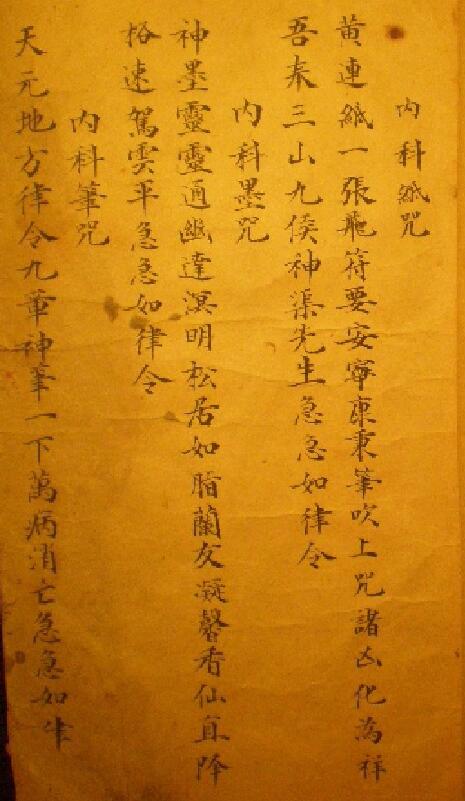 内科紙咒
黄連紙一張飛符要安寧東秉筆吹上咒諸凶化為祥
吾奉三山九侯神渠先生急急如律令
内科墨咒
神墨靈靈通幽達溟明松居如脂蘭友凝馨香仙真降
格速駕雲平急急如律令
内科筆咒
天元地方律令九華神筆一下萬病消亡急急如律